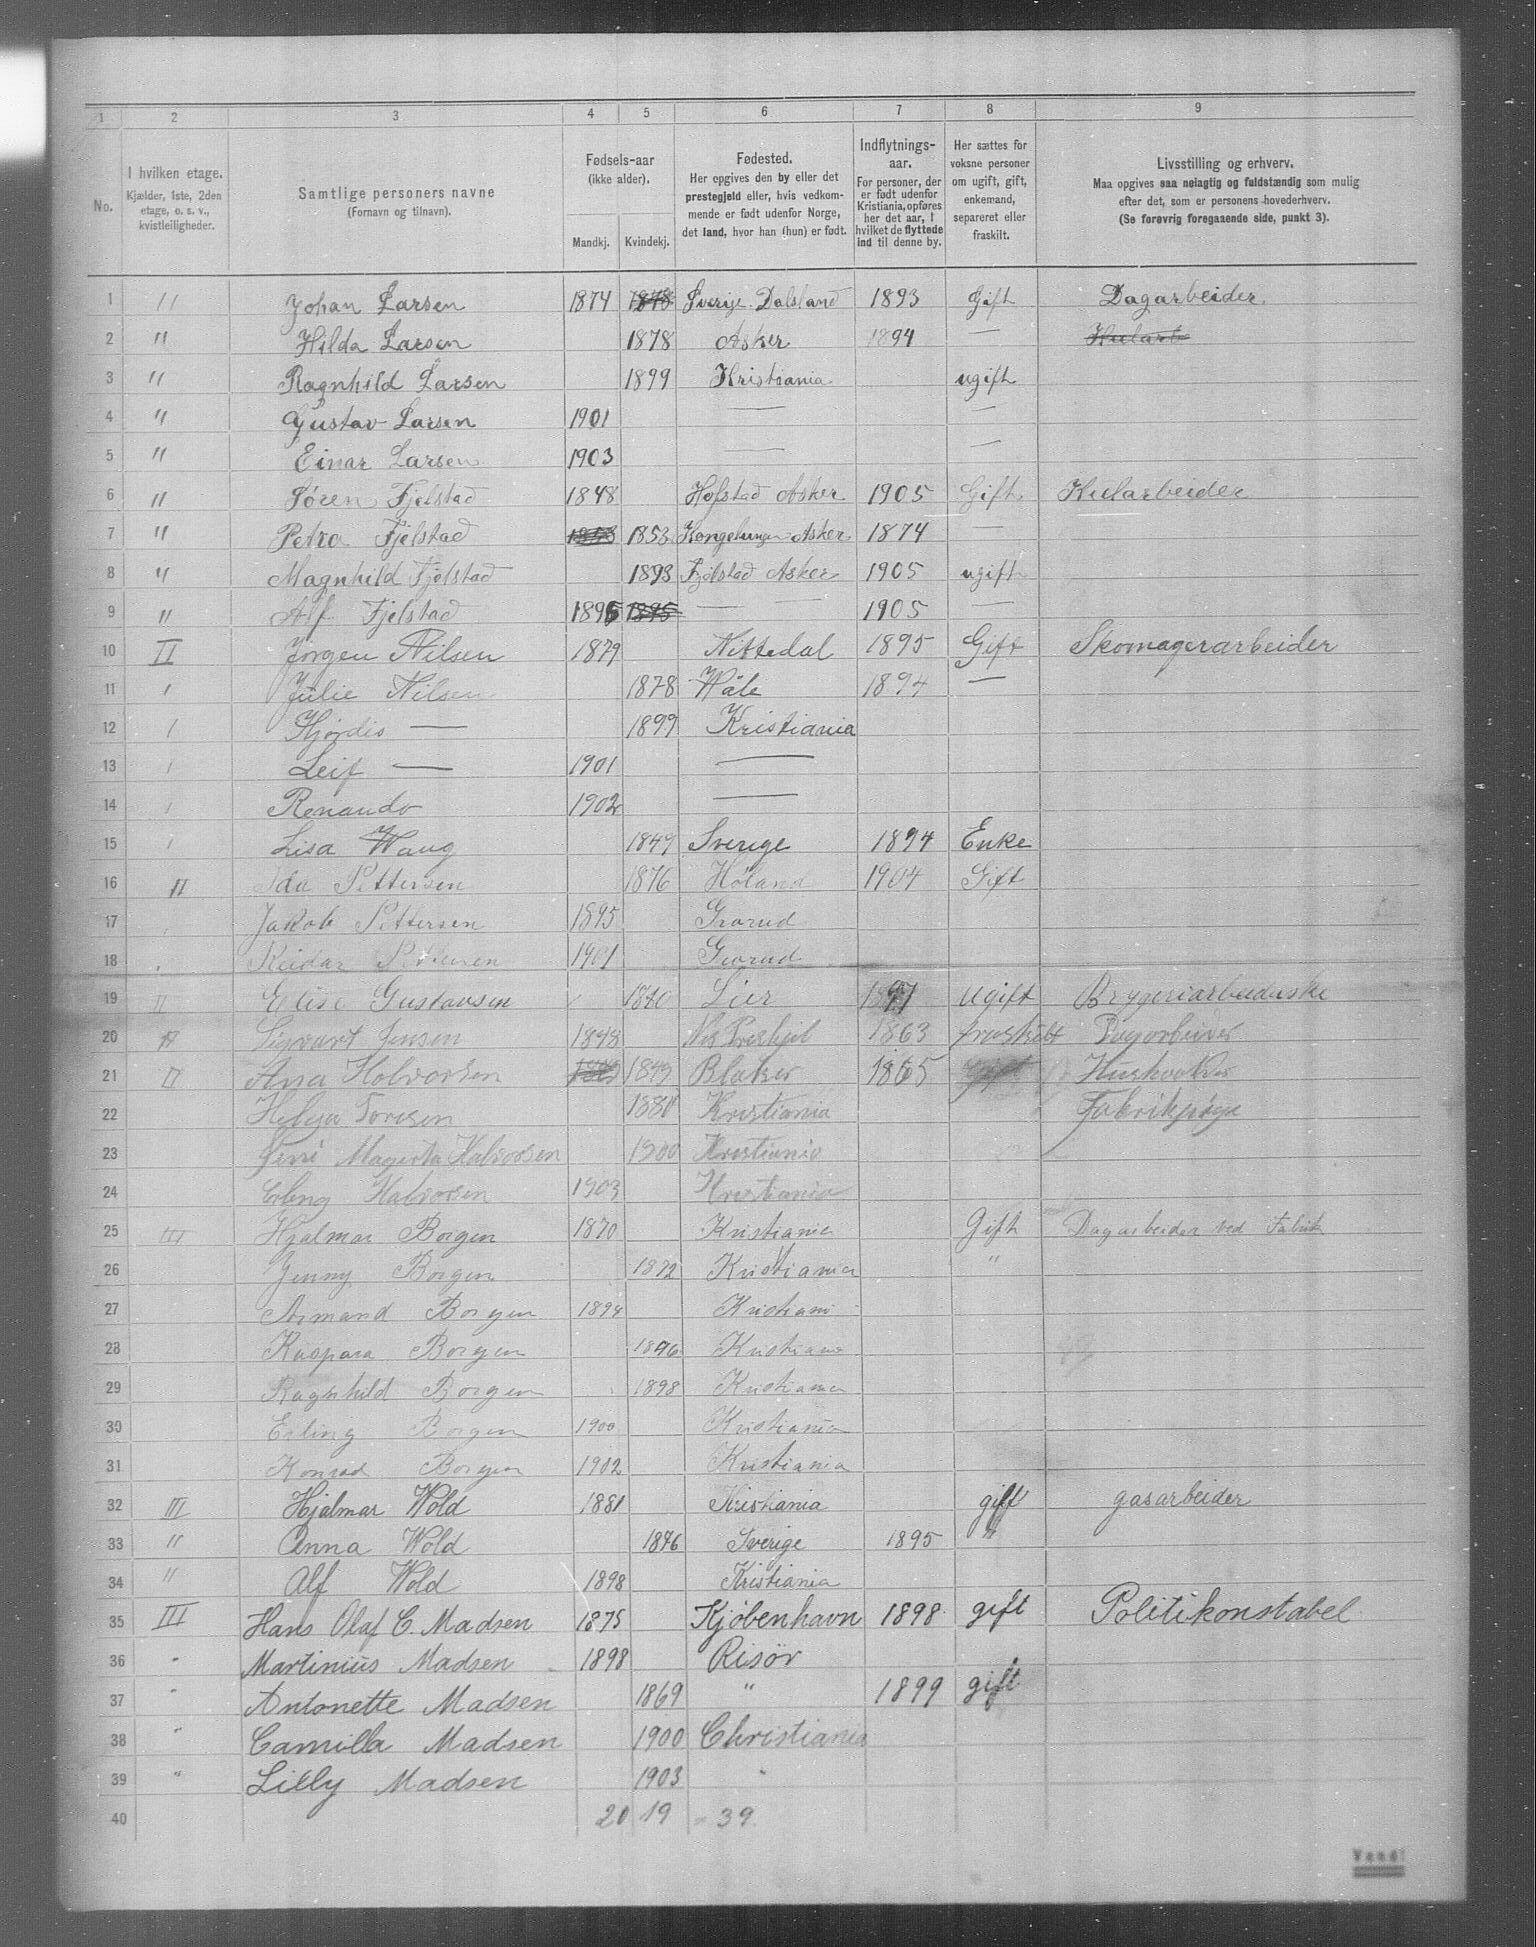 1 2 3 4 5 6 7 8 9
No.
I hvilken etage.
Kjælder, 1ste, 2den
etage, o. s. v.,
kvistleiligheder.
Samtlige personers navne
(Fornavn og tilnavn).
Fødsels-aar
(ikke alder).
Mandkj. Kvindekj.
Fødested.
Her opgives den by eller det
prestegjeld eller, hvis vedkom-
mende er født udenfor Norge,
det land, hvor han (hun) er født.
Indflytnings-
aar.
For personer, der
er født udenfor
Kristiania, opføres
her det aar, i
hvilket de flyttede
ind til denne by.
Her sættes for
voksne personer
om ugift, gift,
enkemand,
separeret eller
fraskilt.
Livsstilling og erhverv.
Maa opgives saa nøiagtig og fuldstændig som mulig
efter det, som er personens hovederhverv.
(Se forøvrig foregaaende side, punkt 3).
1 " Johan Larsen 1874 1878 Sverige Dalsland 1893 Gift Dagarbeider
2 " Hilda Larsen 1878 Asker 1894 —
3 " Ragnhild Larsen 1899 Kristiania ugift
4 " Gustav Larsen 1901 — —
5 " Einar Larsen 1903 — —
6 " Søren Fjelstad 1848 Hofstad Asker 1905 Gift Kularbeider
7 " Petra Fjelstad 1853 Asker 1874 —
8 " Magnhild Fjelstad 1893 Fjelstad Asker 1905 ugift
9 " Alf Fjelstad 1895 — — 1905 —
10 II Jørgen Nilsen 1879 Nittedal 1895 Gift Skomagerarbeider
11 ' Julie Nilsen 1878 Wåle 1894 —
12 ' Hjørdis — 1899 Kristiania
13 ' Leif — 1901 —
14 ' Renando 1902 —
15 ' Lisa Waug 1849 Sverige 1894 Enke
16 II Ida Pettersen 1876 Høland 1904 Gift
17 Jakob Pettersen 1895 Grorud
18 Reidar Pettersen 1901 Grorud
19 II Elise Gustavsen 1840 Lier Ugift Brygeriarbeiderske
20 Sigvart Jensen 1848 1863 fraskilt Dagarbeider
21 II Ana Halvorsen 1849 Blaker 1865
22 Helga Toresen 1880 Kristiania Fabrikpige
23 Halvorsen 1900 Kristiania
24 Erling Halvorsen 1903 Kristiania
25 III Hjalmar Borgen 1870 Kristiania Gift Dagarbeider ved Fabrik
26 Jenny Borgen 1872 Kristiania "
27 Armand Borgen 1894 Kristiani
28 Kaspara Borgen 1896 Kristiana
29 Ragnhild Borgen 1898 Kristiania
30 Erling Borgen 1900 Kristiania
31 Konrad Borgen 1902 Kristiania
32 III Hjalmar Wold 1881 Kristiania gift gasarbeider
33 " Anna Wold 1876 Sverige 1895 "
34 " Alf Wold 1898 Kristiania
35 III Hans Olaf C. Madsen 1875 Kjøbenhavn 1898 gift Politikonstabel
36 " Martinius Madsen 1898 Risör
37 " Antonette Madsen 1869 " 1899 gift
38 " Camilla Madsen 1900 Christiania
39 " Lilly Madsen 1903 "
40 20 19 = 39.
Vend!